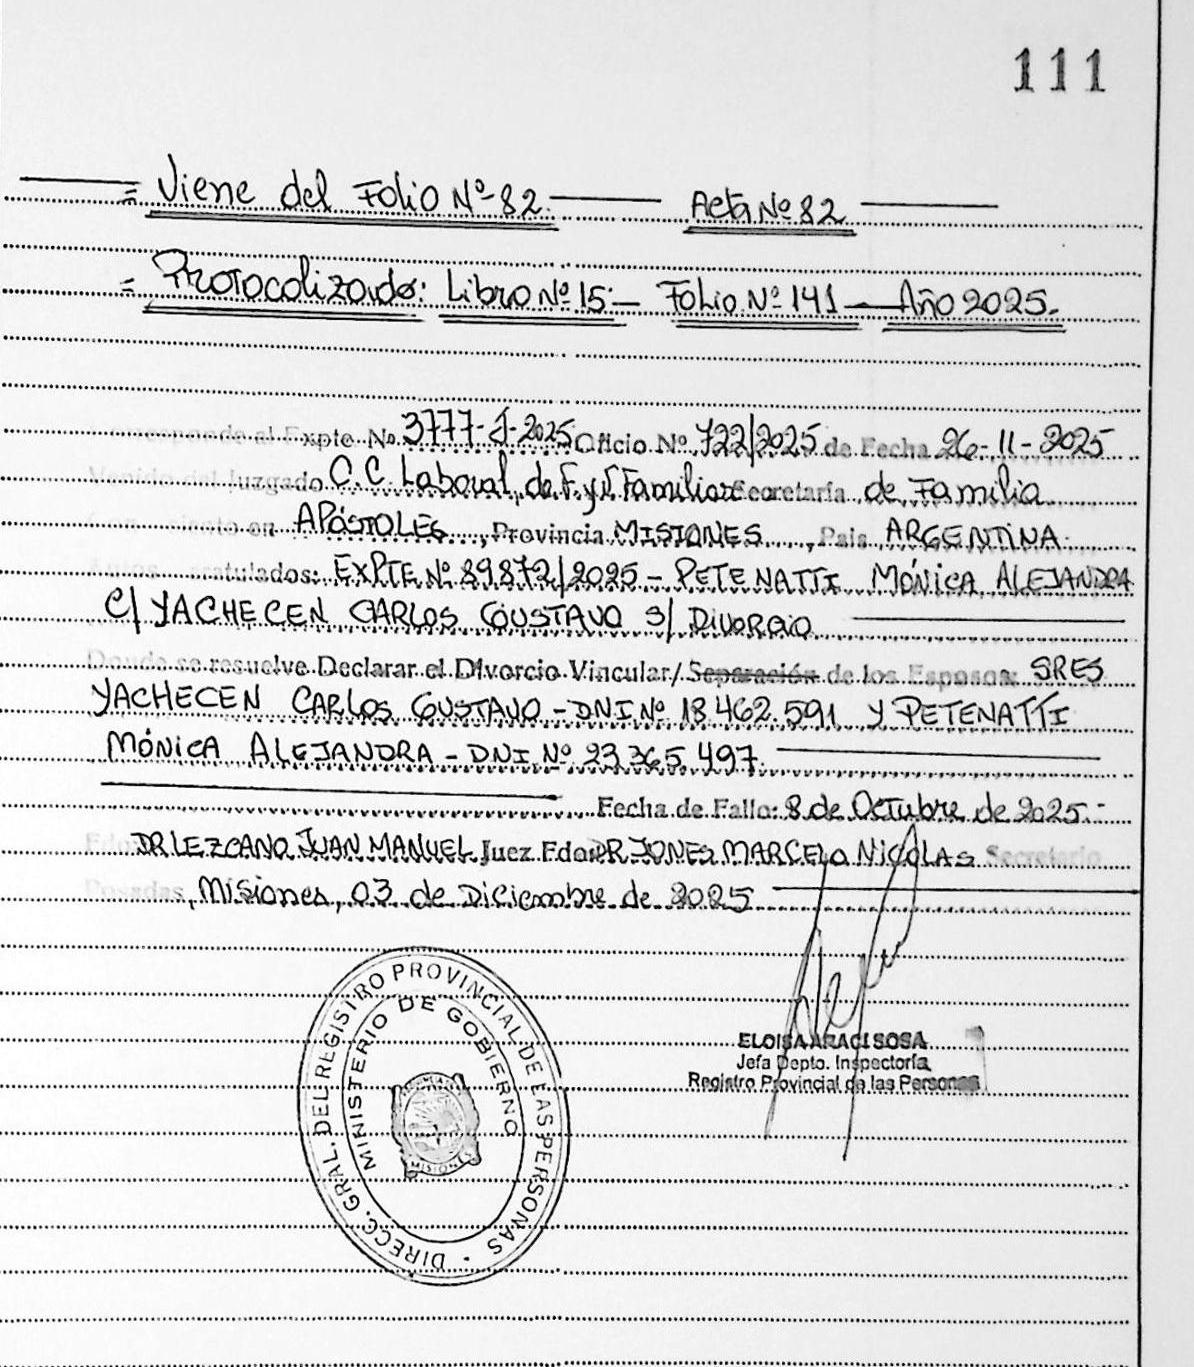 111
= Viene del Folio Nº 82 — Acta Nº 82 —
= Protocolizado: Libro Nº 15 — Folio Nº 141 — Año 2025.
Corresponde al Expte Nº 3777-J-2025 Oficio Nº 722/2025 de Fecha 26-11-2025
Venido del Juzgado C.C. Laboral, de F. y V. Familiar Secretaría de Familia
en APÓSTOLES, Provincia MISIONES, País ARGENTINA
Autos caratulados: EXPTE Nº 89872/2025 - PETENATTI MÓNICA ALEJANDRA
C/ YACHECEN CARLOS GUSTAVO S/ DIVORCIO
Donde se resuelve Declarar el Divorcio Vincular/Separación de los Esposos: SRES
YACHECEN CARLOS GUSTAVO - DNI Nº 18 462.591 Y PETENATTI
MÓNICA ALEJANDRA - DNI Nº 23 365 497.
Fecha de Fallo: 8 de Octubre de 2025.-
Fdo. DR LEZCANO JUAN MANUEL Juez Fdo. DR JONES MARCELO NICOLAS Secretario
Posadas, Misiones, 03 de Diciembre de 2025
DIRECC. GRAL. DEL REGISTRO PROVINCIAL DE LAS PERSONAS
MINISTERIO DE GOBIERNO
MISIONES
ELOISA ARACI SOSA
Jefa Depto. Inspectoría
Registro Provincial de las Personas